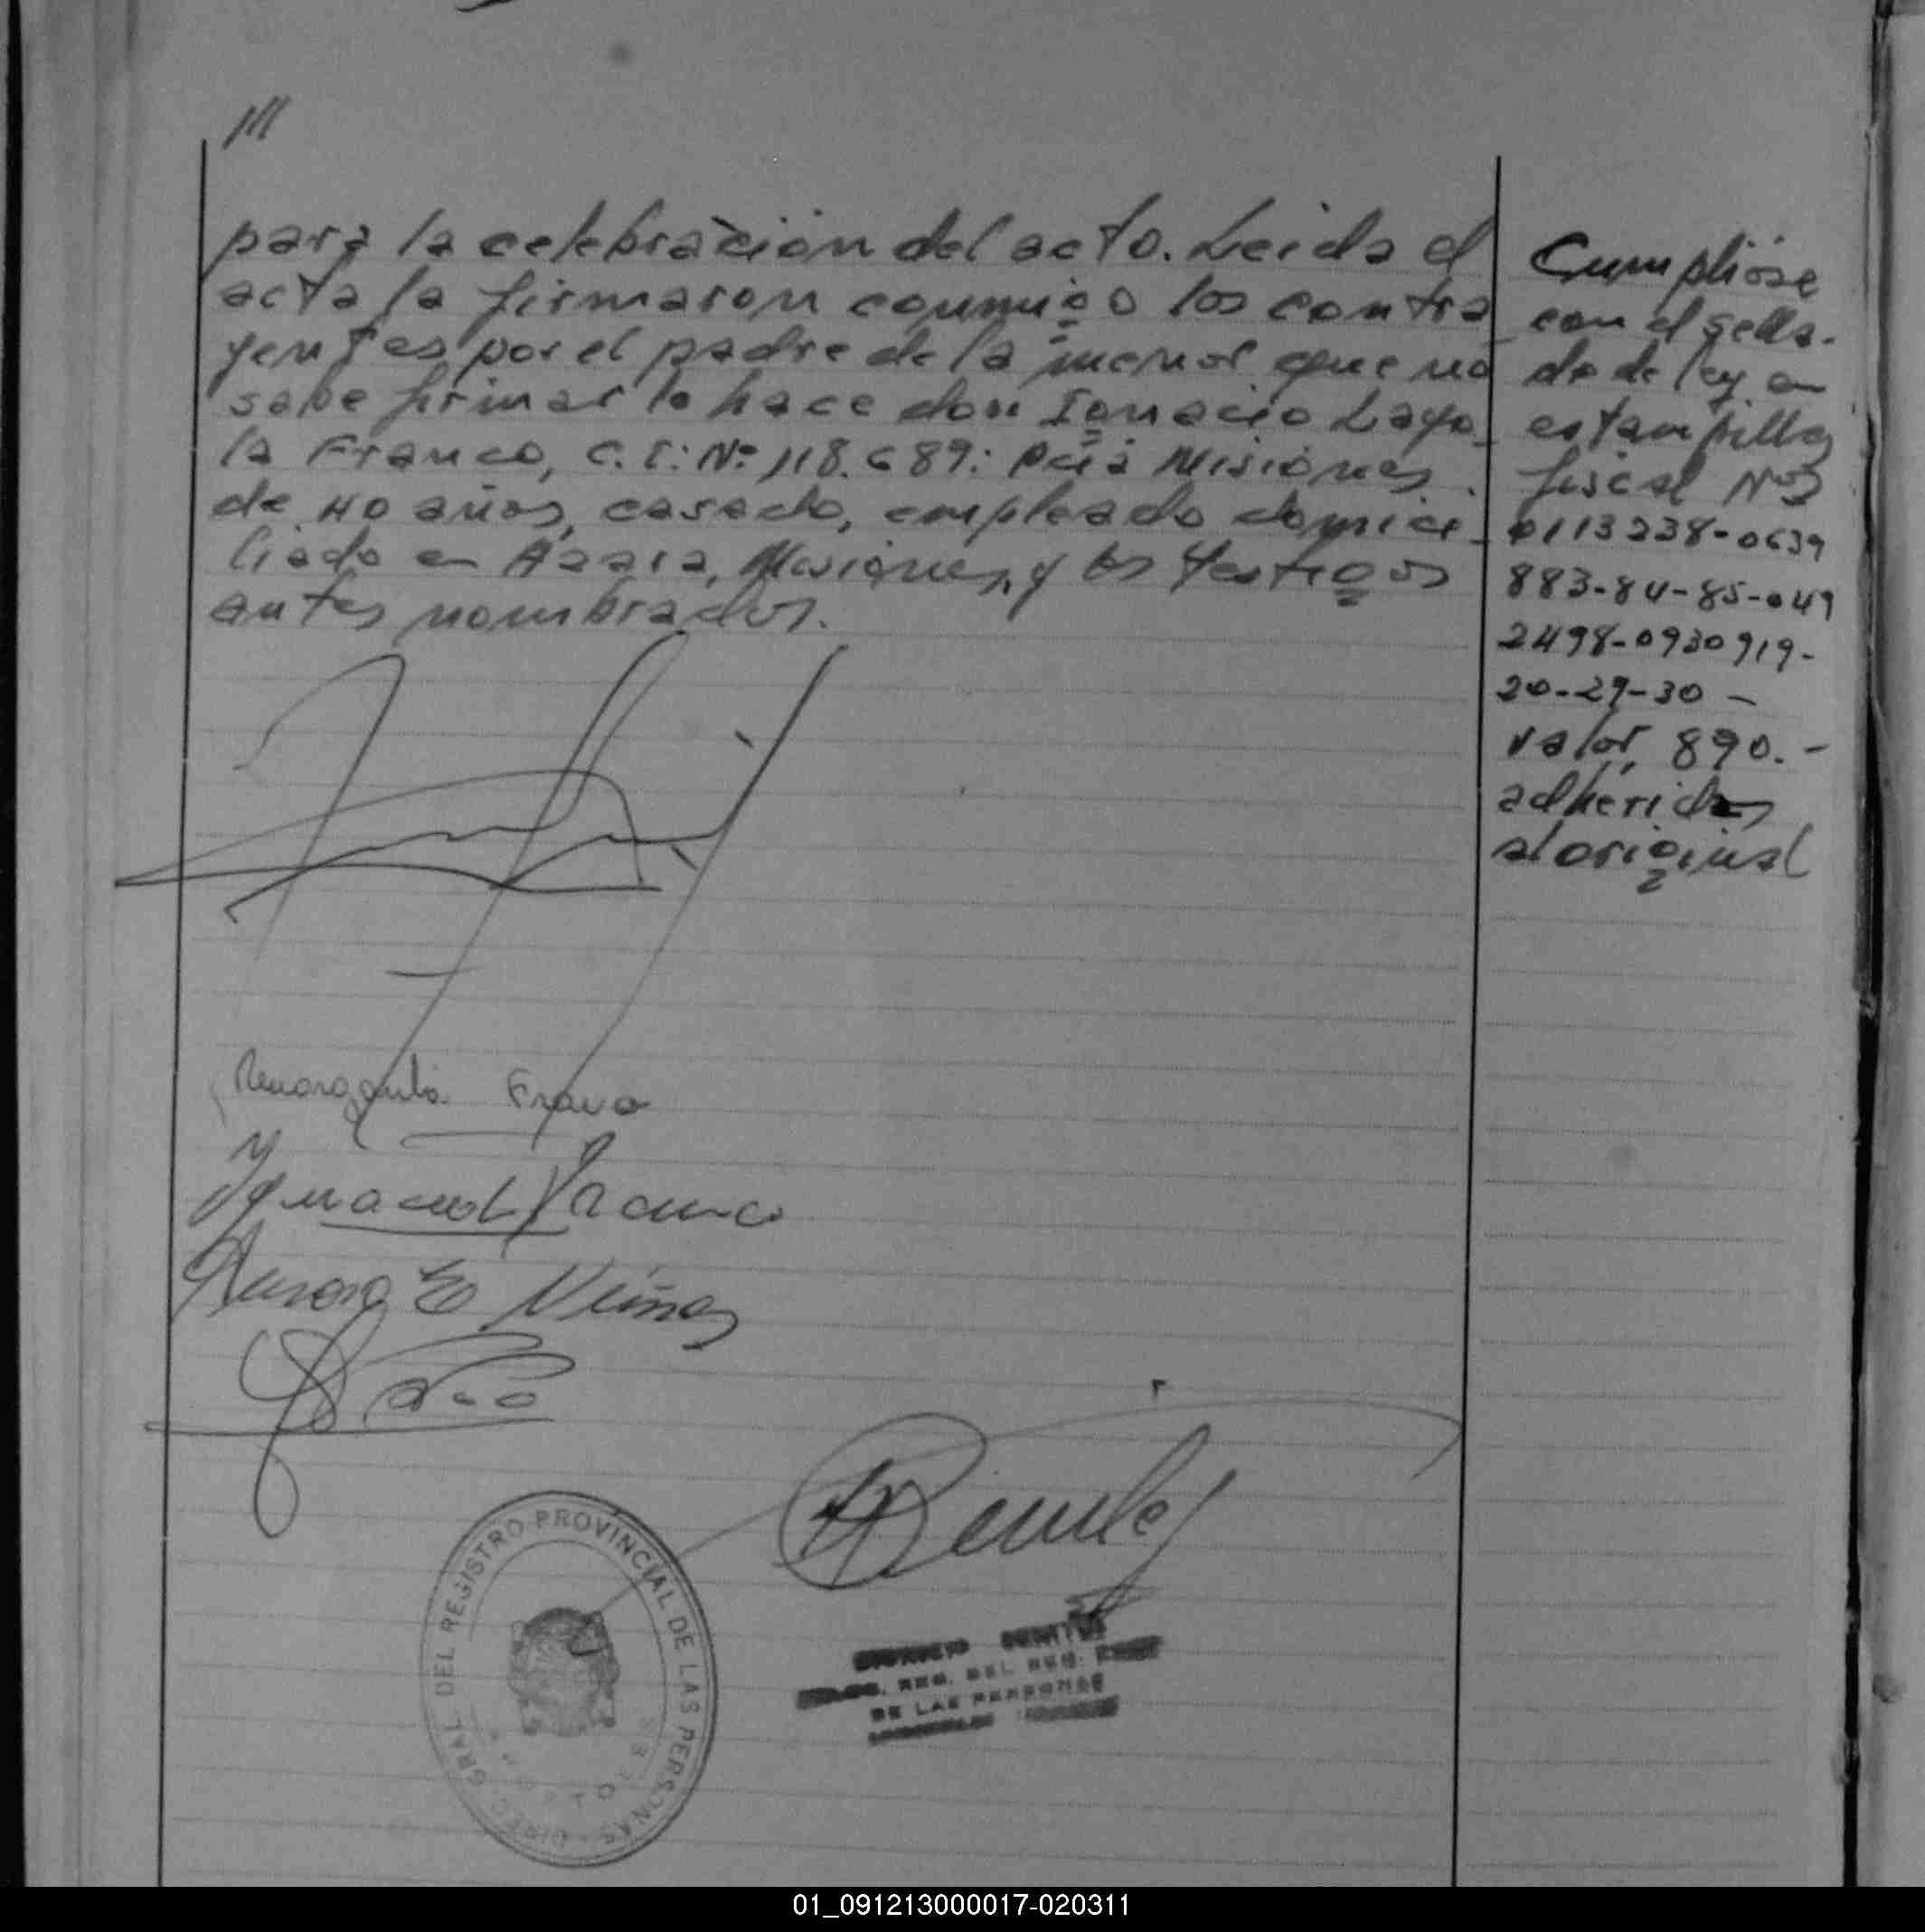 ///
para la celebración del acto. Leida el
acta la firmaron conmigo los contra
yentes por el padre de la menor que no
sabe firmar lo hace don Ignacio Layo
la Franco, C. I: Nº 118.689: Pcia Misiones
de 40 años, casado, empleado domici
liado en Azara, Misiones, y los testigos
antes nombrados.
Cumplióse
con el sella-
do de ley en
estampillas
fiscal Nos
0113238-0639
883-84-85-049
2498-0930919-
20-29-30 -
valor, 890.-
adheridas
al original
Margarita Franco
Ygnacio L Franco
Aurora E Viñas
DIREC. GRAL. DEL REGISTRO PROVINCIAL DE LAS PERSONAS
BENITEZ
REG. DEL REG.
DE LAS PERSONAS
01_091213000017-020311